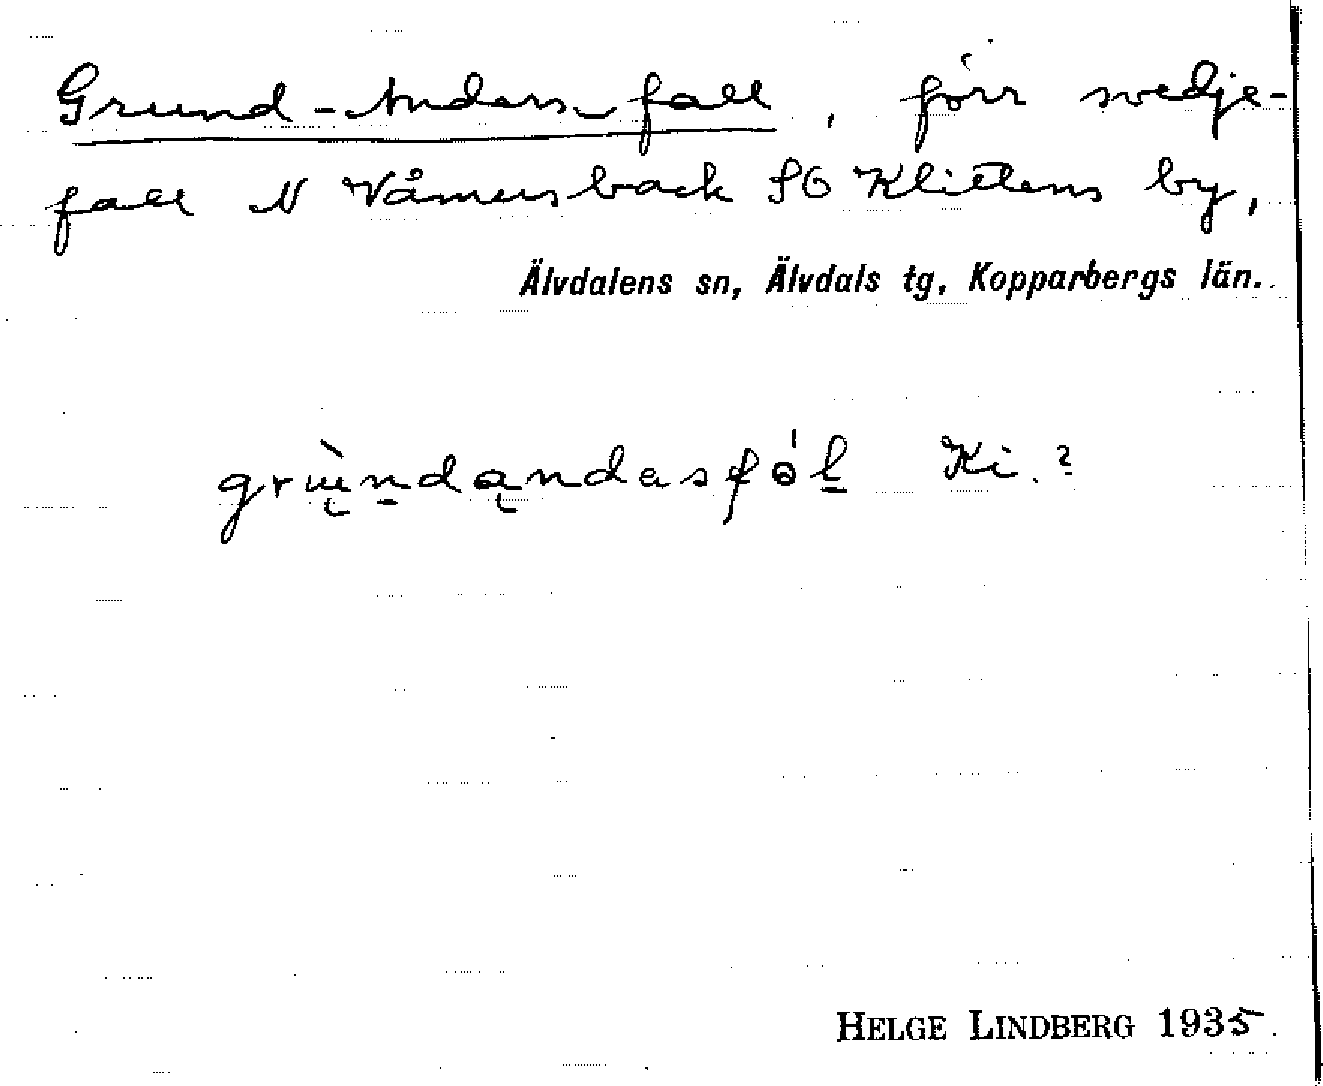 Grund-Andersfall, förr svedje-
fall N Våmusback SO Klittens by,
Älvdalens sn, Älvdals tg, Kopparbergs län.
Ki.?
HELGE LINDBERG 1935.